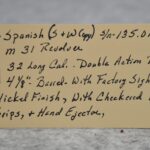 Spanish (S+W Copy) S/n-135.0
m 31 Revolver
32 Long Cal. Double Action
4 1/8" Barrel With Factory Sigh
Nickel Finish, With Checkered
Grips, + Hand Ejector,